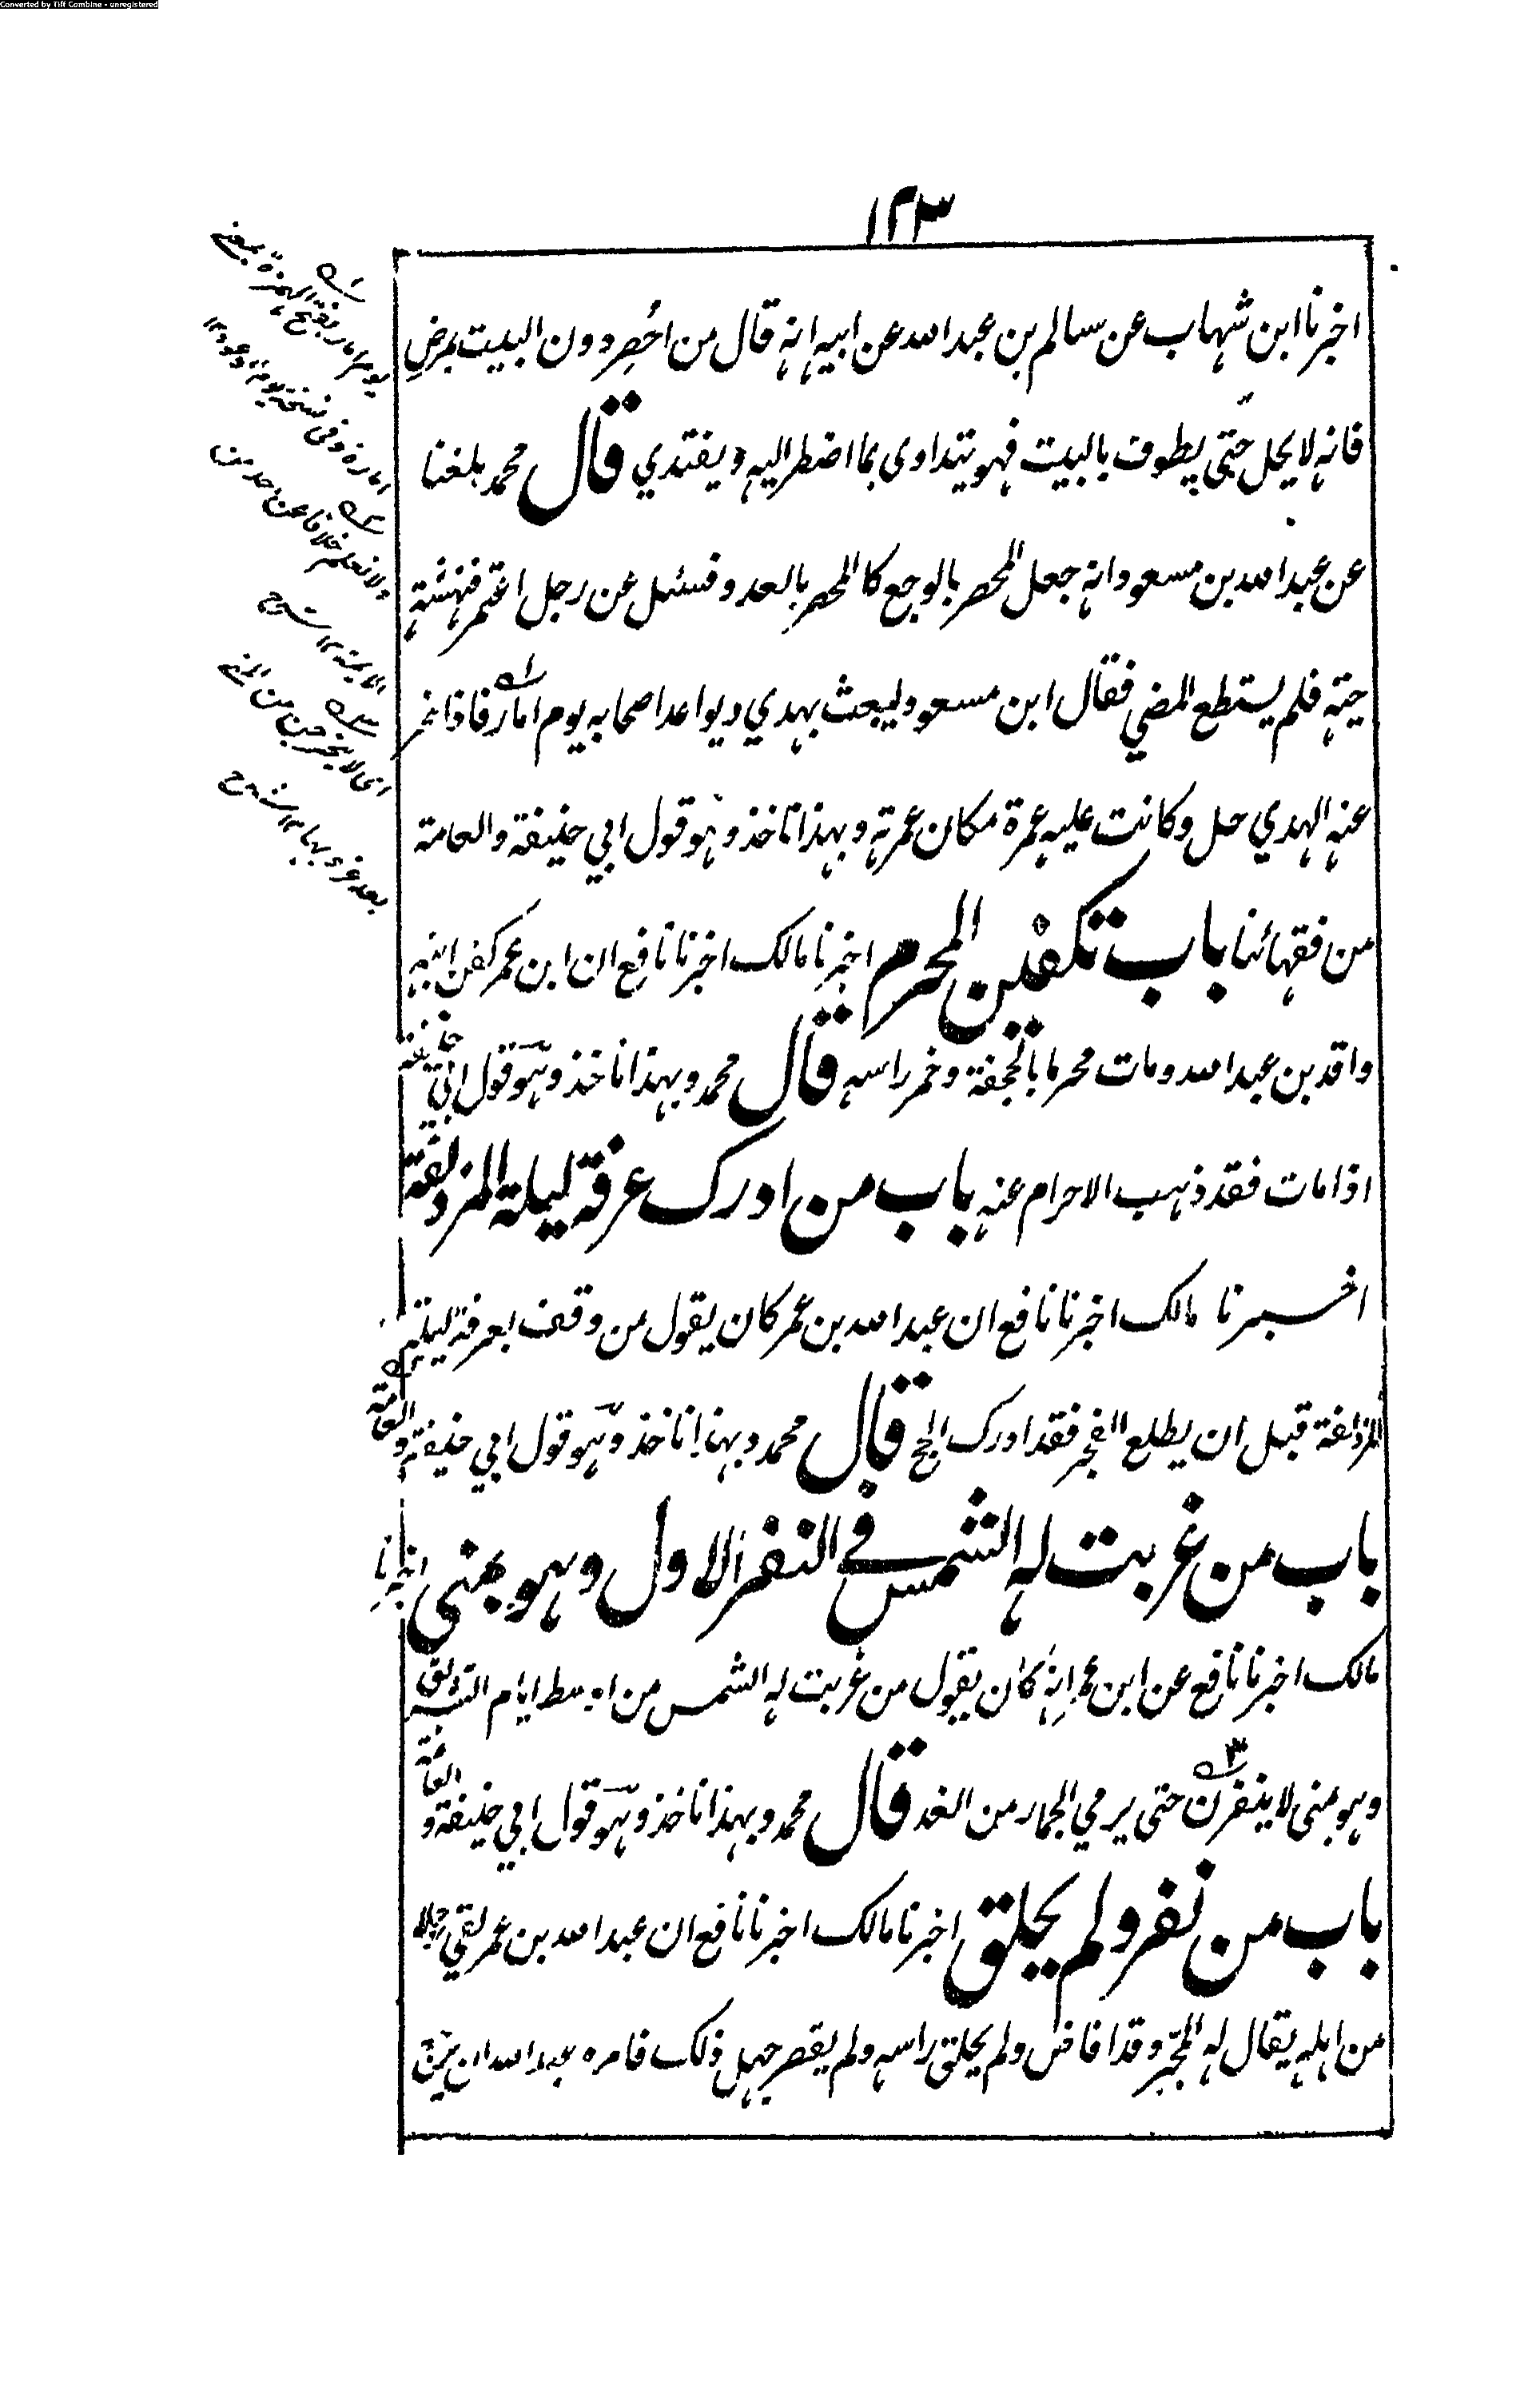 Converted by Tiff Combine - unregistered
١٢٣
اخبرنا ابن شهاب عن سالم بن عبد الله عن ابيه انه قال من احُصِر دون البيت بمرضٍ
فانه لا يحل حتى يطوف بالبيت فهو يتداوى بما اضطر اليه ويفتدي قال محمد بلغنا
عن عبد الله بن مسعود انه جعل المحصر بالوجع كالمحصر بالعدو فسئل عن رجل اعتمر فنهشته
حيّة فلم يستطع المضي فقال ابن مسعود ليبعث بهدي ويواعد اصحابه يوم امار فاذا نحر
عنه الهدي حل وكانت عليه عمرة مكان عمرته وبهذا ناخذ وهو قول ابي حنيفة والعامة
من فقهائنا باب تكفين المحرم اخبرنا مالك اخبرنا نافع ان ابن عمر كفن ابنه
واقد بن عبد الله ومات محرما بالجحفة وخمر راسه قال محمد وبهذا ناخذ وهو قول ابي حنيفة
اذا مات فقد ذهب الاحرام عنه باب من ادرك عرفة ليلة المزدلفة
اخبرنا مالك اخبرنا نافع ان عبد الله بن عمر كان يقول من وقف بعرفة ليلة
المزدلفة قبل ان يطلع الفجر فقد ادرك الحج قال محمد وبهذا ناخذ وهو قول ابي حنيفة والعامة
باب من غربت له الشمس في النفر الاول وهو بمنى اخبرنا
مالك اخبرنا نافع عن ابن عمر انه كان يقول من غربت له الشمس من اوسط ايام التشريق
وهو بمنى لا ينفرن حتى يرمي الجمار من الغد قال محمد وبهذا ناخذ وهو قول ابي حنيفة والعامة
باب من نفر ولم يحلق اخبرنا مالك اخبرنا نافع ان عبد الله بن عمر لقي رجلا
من اهله يقال له المجبّر وقد افاض ولم يحلق راسه ولم يقصر جهل ذلك فامره عبد الله ان يرجع
١ـه
يوم امار بفتح الهمزة بمعنى
امارة وفي نسخة يوما موعودا ١٢
٢ـه
ولا نعلم خلافا عن احد من
الايمة ١٢ شرح
٣ـه
اى لا يخرجن من المنى
بعد غروبها ١٢ شرح